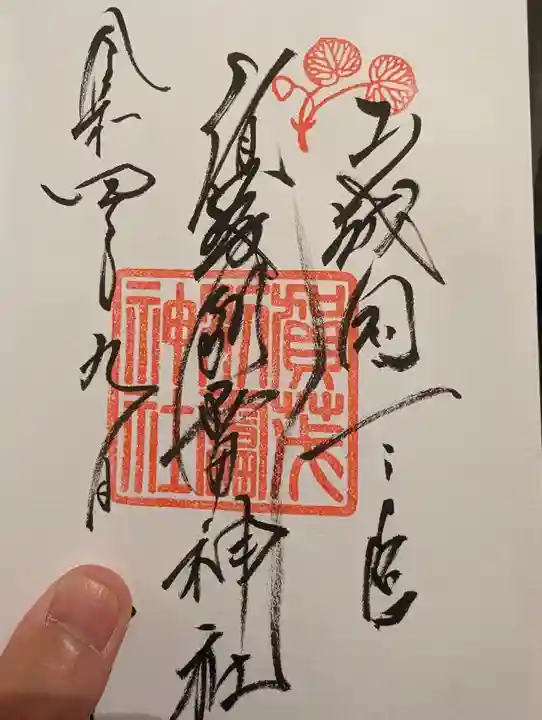 山城国一之宮
別雷神社
令和四年九月
賀茂
別雷
神社